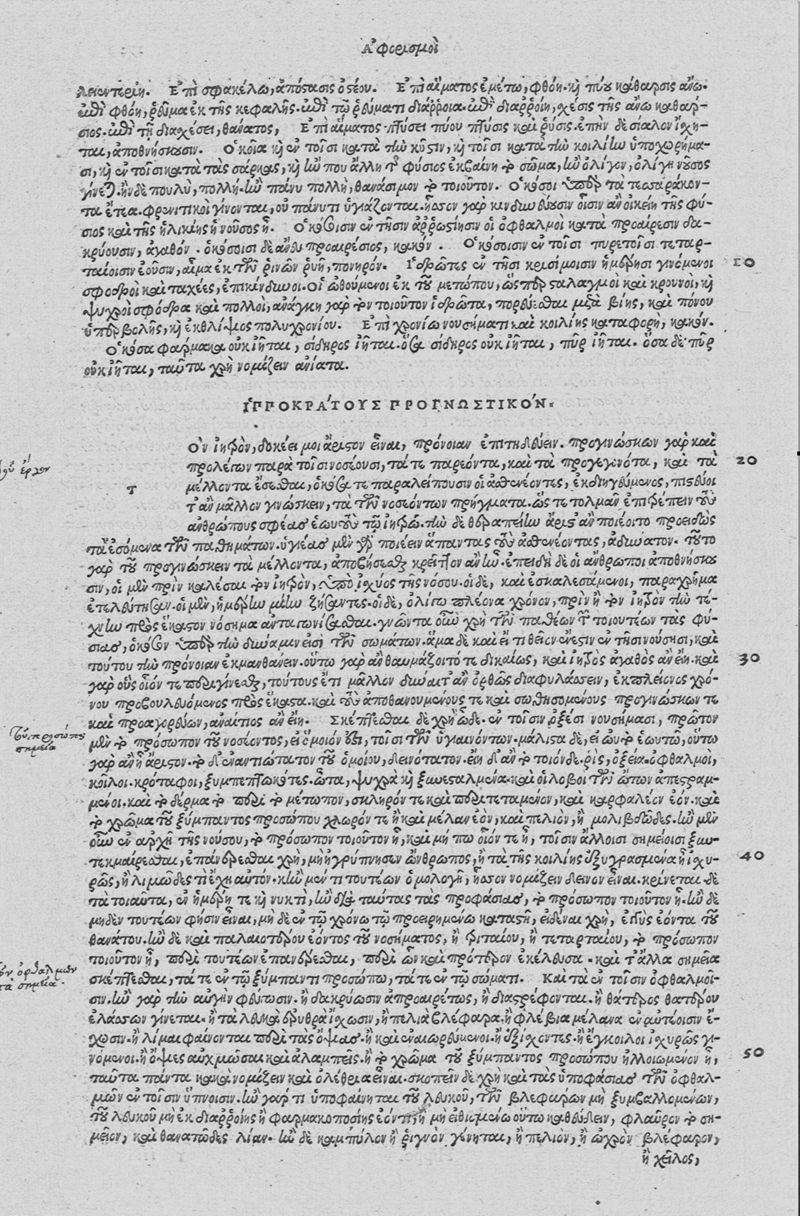 Ἀφορισμοὶ
λειεντερίη. Ἐπὶ σφακέλῳ, ἀπόστασις ὀστέου. Ἐπὶ αἵματος ἐμέτῳ, φθόη. καὶ πύου κάθαρσις ἄνω.
ἐπὶ φθόῃ, ῥεῦμα ἐκ τῆς κεφαλῆς. ἐπὶ τῷ ῥεύματι διάρροια. ἐπὶ διαρροίῃ, σχέσις τῆς ἄνω καθάρ-
σιος. ἐπὶ τῇ διασχέσει, θάνατος, Ἐπὶ αἵματος πτύσει πύου πτύσις καὶ ῥύσις. ἐπὴν δὲ σίαλον ἴσχη-
ται, ἀποθνήσκουσιν. Ὁκοῖα καὶ ἐν τοῖσι κατὰ τὴν κύστιν, καὶ τοῖσι κατὰ τὴν κοιλίην ὑποχωρήμα-
σι, καὶ ἐν τοῖσι κατὰ τὰς σάρκας, καὶ ἤν που ἄλλη τῆς φύσιος ἐκβαίνη τὸ σῶμα, ἢν ὀλίγον, ὀλίγη νοῦσος
γίνεται. ἢν δὲ πουλὺ, πολλή. ἢν πάνυ πολλὴ, θανάσιμον τὸ τοιοῦτον. Ὁκόσοι ὑπὲρ τὰ τεσσαράκον-
τα ἔτεα. φρενιτικοὶ γίνονται, οὐ πάνυ τι ὑγιάζονται. ἧσσον γὰρ κινδυνεύουσιν οἷσιν ἂν οἰκείη τῆς φύ-
σιος καὶ τῆς ἡλικίης ἡ νοῦσος ᾖ. Ὁκόσοισιν ἐν τῇσιν ἀῤῥωστίησιν οἱ ὀφθαλμοὶ κατὰ προαίρεσιν δα-
κρύουσιν, ἀγαθόν. ὁκόσοισι δὲ ἄνευ προαιρέσιος, κακόν. Ὁκόσοισιν ἐν τοῖσι πυρετοῖσι τεταρ-
ταίοισιν ἐοῦσιν, αἷμα ἐκ τῶν ῥινῶν ῥυῇ, πονηρόν. Ἱδρῶτες ἐν τῇσι κρισίμοισιν ἡμέρῃσι γινόμενοι 10
σφοδροὶ καὶ ταχέες, ἐπικίνδυνοι. Οἱ ὠθούμενοι ἐκ τοῦ μετώπου, ὥσπερ σταλαγμοὶ καὶ κρουνοὶ, καὶ
ψυχροὶ σφόδρα καὶ πολλοὶ, ἀνάγκη γὰρ τὸν τοιοῦτον ἱδρῶτα, πορεύεσθαι μετὰ βίης, καὶ πόνου
ὑπερβολῆς, καὶ ἐκθλίψιος πολυχρονίου. Ἐπὶ χρονίῳ νουσήματι καὶ κοιλίης καταφορὴ, κακόν.
Ὁκόσα φάρμακα οὐκ ἰῆται, σίδηρος ἰῆται. ὅσα σίδηρος οὐκ ἰῆται, πῦρ ἰῆται. ὅσα δὲ πῦρ
οὐκ ἰῆται, ταῦτα χρὴ νομίζειν ἀνίατα.
ἹΠΠΟΚΡΑΤΟΥΣ ΠΡΟΓΝΩΣΤΙΚΟΝ.
τ
Ὸν ἰητρὸν, δοκέει μοι ἄριστον εἶναι, πρόνοιαν ἐπιτηδεύειν. προγινώσκων γὰρ καὶ
προλέγων παρὰ τοῖσι νοσέουσι, τά τε παρεόντα, καὶ τὰ προγεγονότα, καὶ τὰ 20
μέλλοντα ἔσεσθαι, ὁκόσα τε παραλείπουσιν οἱ ἀσθενέοντες, ἐκδιηγεύμενος, πιστεύοι
τ᾽ ἂν μᾶλλον γινώσκειν, τὰ τῶν νοσεόντων πρήγματα. ὥστε τολμᾶν ἐπιτρέπειν τοὺς
ἀνθρώπους σφέας ἑωυτοὺς τῷ ἰητρῷ. τὴν δὲ θεραπείην ἄριστ᾽ ἂν ποιέοιτο προειδὼς
τὰ ἐσόμενα τῶν παθημάτων. ὑγιέας μὲν γὰρ ποιέειν ἅπαντας τοὺς ἀσθενέοντας, ἀδύνατον. τοῦτο
γὰρ τοῦ προγινώσκειν τὰ μέλλοντα, ἀποβήσεσθαι κρεῖττον ἂν ἦν. ἐπειδὴ δὲ οἱ ἄνθρωποι ἀποθνήσκου
σιν, οἱ μὲν πρὶν καλέσαι τὸν ἰητρὸν, ὑπὸ ἰσχύος τῆς νόσου. οἱ δὲ, καὶ ἐσκαλεσάμενοι, παραχρῆμα
ἐτελεύτησαν. οἱ μὲν, ἡμέρην μίην ζήσαντες. οἱ δὲ, ὀλίγῳ πλέονα χρόνον, πρὶν ἢ τὸν ἰητρὸν τὴν τέ-
χνην πρὸς ἕκαστον νόσημα ἀνταγωνίσασθαι. γνῶντα οὖν χρὴ τῶν παθέων τῶν τοιουτέων τὰς φύ-
σιας, ὁκόσον ὑπὲρ τὴν δύναμιν εἰσὶ τῶν σωμάτων. ἅμα δὲ καὶ εἴ τι θεῖον ἔνεστιν ἐν τῇσι νούσῃσι, καὶ
τούτου τὴν πρόνοιαν ἐκμανθάνειν. οὕτω γὰρ ἂν θαυμάζοιτό τε δικαίως, καὶ ἰητρὸς ἀγαθὸς ἂν εἴη. καὶ 30
γὰρ οὓς οἷόν τε περιγίνεσθαι, τούτους ἔτι μᾶλλον δύναιτ᾽ ἂν ὀρθῶς διαφυλάσσειν, ἐκ πλείονος χρό-
νου προβουλευόμενος πρὸς ἕκαστα. καὶ τοὺς ἀποθανουμένους τε καὶ σωθησομένους προγινώσκων τε
καὶ προαγορεύων, ἀναίτιος ἂν εἴη. Σκέπτεσθαι δὲ χρὴ ὧδε. ἐν τοῖσιν ὀξέσι νουσήμασι, πρῶτον
μὲν τὸ πρόσωπον τοῦ νοσέοντος, εἰ ὅμοιόν ἐστι, τοῖσι τῶν ὑγιαινόντων. μάλιστα δὲ, εἰ αὐτὸ ἑωυτῷ, οὕτω
γὰρ ἂν ἦ ἄριστον. τὸ δ᾽ ἐναντιώτατον τοῦ ὁμοίου, δεινότατον. εἴη δ᾽ ἂν τὸ τοιόνδε. ῥὶς, ὀξεῖα. ὀφθαλμοὶ,
κοῖλοι. κρόταφοι, ξυμπεπτωκότες. ὦτα, ψυχρὰ καὶ ξυνεσταλμένα. καὶ οἱ λοβοὶ τῶν ὤτων ἀπεστραμ-
μένοι. καὶ τὸ δέρμα τὸ περὶ τὸ μέτωπον, σκληρόν τε καὶ περιτεταμένον, καὶ καρφαλέον ἐόν. καὶ
τὸ χρῶμα τοῦ ξύμπαντος προσώπου χλωρόν τε ἢ καὶ μέλαν ἐὸν, καὶ πελιὸν, ἢ μολιβδῶδες. ἢν μὲν
οὖν ἐν ἀρχῇ τῆς νούσου, τὸ πρόσωπον τοιοῦτον ᾖ, καὶ μή πω οἷόν τε ᾖ, τοῖσιν ἄλλοισι σημείοισι ξυν-
τεκμαίρεσθαι, ἐπανέρεσθαι χρὴ, μὴ ἠγρύπνησεν ὥνθρωπος, ἢ τὰ τῆς κοιλίης ἐξυγρασμένα ᾖ ἰσχυ- 40
ρῶς, ἢ λιμῶδές τι ἔχῃ αὐτόν. κἢν μέν τι τουτέων ὁμολογῇ, ἧσσον νομίζειν δεινὸν εἶναι. κρίνεται δὲ
τὰ τοιαῦτα, ἐν ἡμέρῃ τε καὶ νυκτὶ, ἢν διὰ ταύτας τὰς προφάσιας, τὸ πρόσωπον τοιοῦτον ᾖ. ἢν δὲ
μηδὲν τουτέων φησὶν εἶναι, μὴ δὲ ἐν τῷ χρόνῳ τῷ προειρημένῳ καταστῇ, εἰδέναι χρὴ, ἐγγὺς ἐόντα τοῦ
θανάτου. ἢν δὲ καὶ παλαιοτέρου ἐόντος τοῦ νοσήματος, ἢ τριταίου, ἢ τεταρταίου, τὸ πρόσωπον
τοιοῦτον ᾖ, περὶ τουτέων ἐπανέρεσθαι, περὶ ὧν καὶ πρότερον ἐκέλευσα. καὶ τἄλλα σημεῖα
σκέπτεσθαι, τά τε ἐν τῷ ξύμπαντι προσώπῳ, τά τε ἐν τῷ σώματι. Καὶ τὰ ἐν τοῖσιν ὀφθαλμοῖ-
σιν. ἢν γὰρ τὴν αὐγὴν φεύγωσιν. ἢ δακρύωσιν ἀπροαιρέτως, ἢ διαστρέφονται. ἢ θάτερος θατέρου
ἐλάσσων γίνεται. ἢ τὰ λευκὰ ἐρυθρὰ ἴσχωσιν, ἢ πελιὰ βλέφαρα. ἢ φλέβια μέλανα ἐν ἑωυτέοισιν ἔ-
χωσιν. ἢ λῆμαι φαίνονται περὶ τὰς ὄψιας. ἢ καὶ ἐναιωρεύμενοι. ἢ ἐξίσχοντες. ἢ ἔγκοιλοι ἰσχυρῶς γι-
νόμενοι. ἢ ὄψιες αὐχμῶσαι καὶ ἀλαμπεῖς. ἢ τὸ χρῶμα τοῦ ξύμπαντος προσώπου ἠλλοιωμένον ᾖ, 50
ταῦτα πάντα κακὰ νομίζειν καὶ ὀλέθρια εἶναι. σκοπεῖν δὲ χρὴ καὶ τὰς ὑποφάσιας τῶν ὀφθαλ-
μῶν ἐν τοῖσιν ὕπνοισιν. ἢν γάρ τι ὑποφαίνηται τοῦ λευκοῦ, τῶν βλεφάρων μὴ ξυμβαλλομένων,
τοῦ λευκοῦ μὴ ἐκ διαῤῥοίης ἢ φαρμακοποσίης ἐόντι, ἢ μὴ εἰθισμένῳ οὕτω καθεύδειν, φλαῦρον τὸ ση-
μεῖον, καὶ θανατῶδες λίαν. ἢν δὲ καμπύλον ἢ ῥικνὸν γένηται, ἢ πελιὸν, ἢ ὠχρὸν βλέφαρον,
ἢ χεῖλος,